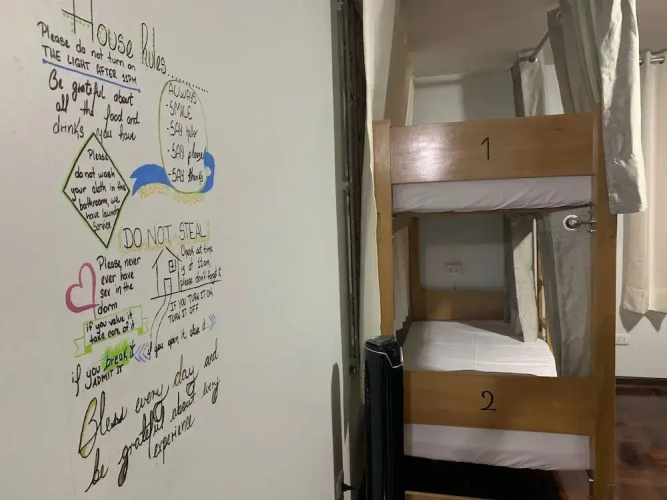 House Rules.......
Please do not turn on
THE LIGHT AFTER 11PM
Be grateful about
all the food and
drinks you have
ALWAYS
-SMILE
-SAY hello
-SAY please
-SAY thanks
RESPECT EVERYBODY
Please
do not wash
your cloth in the
bathroom, we
have laundry
service
DO NOT STEAL
Check out time
is at 11am,
please don't forget it
Please, never
ever have
sex in the
dorm
IF YOU TURN IT ON
TURN IT OFF
if you value it
take care of it
if you open it, close it
if you break it
ADMIT IT
Bless every day and
be grateful about every
experience
1
2